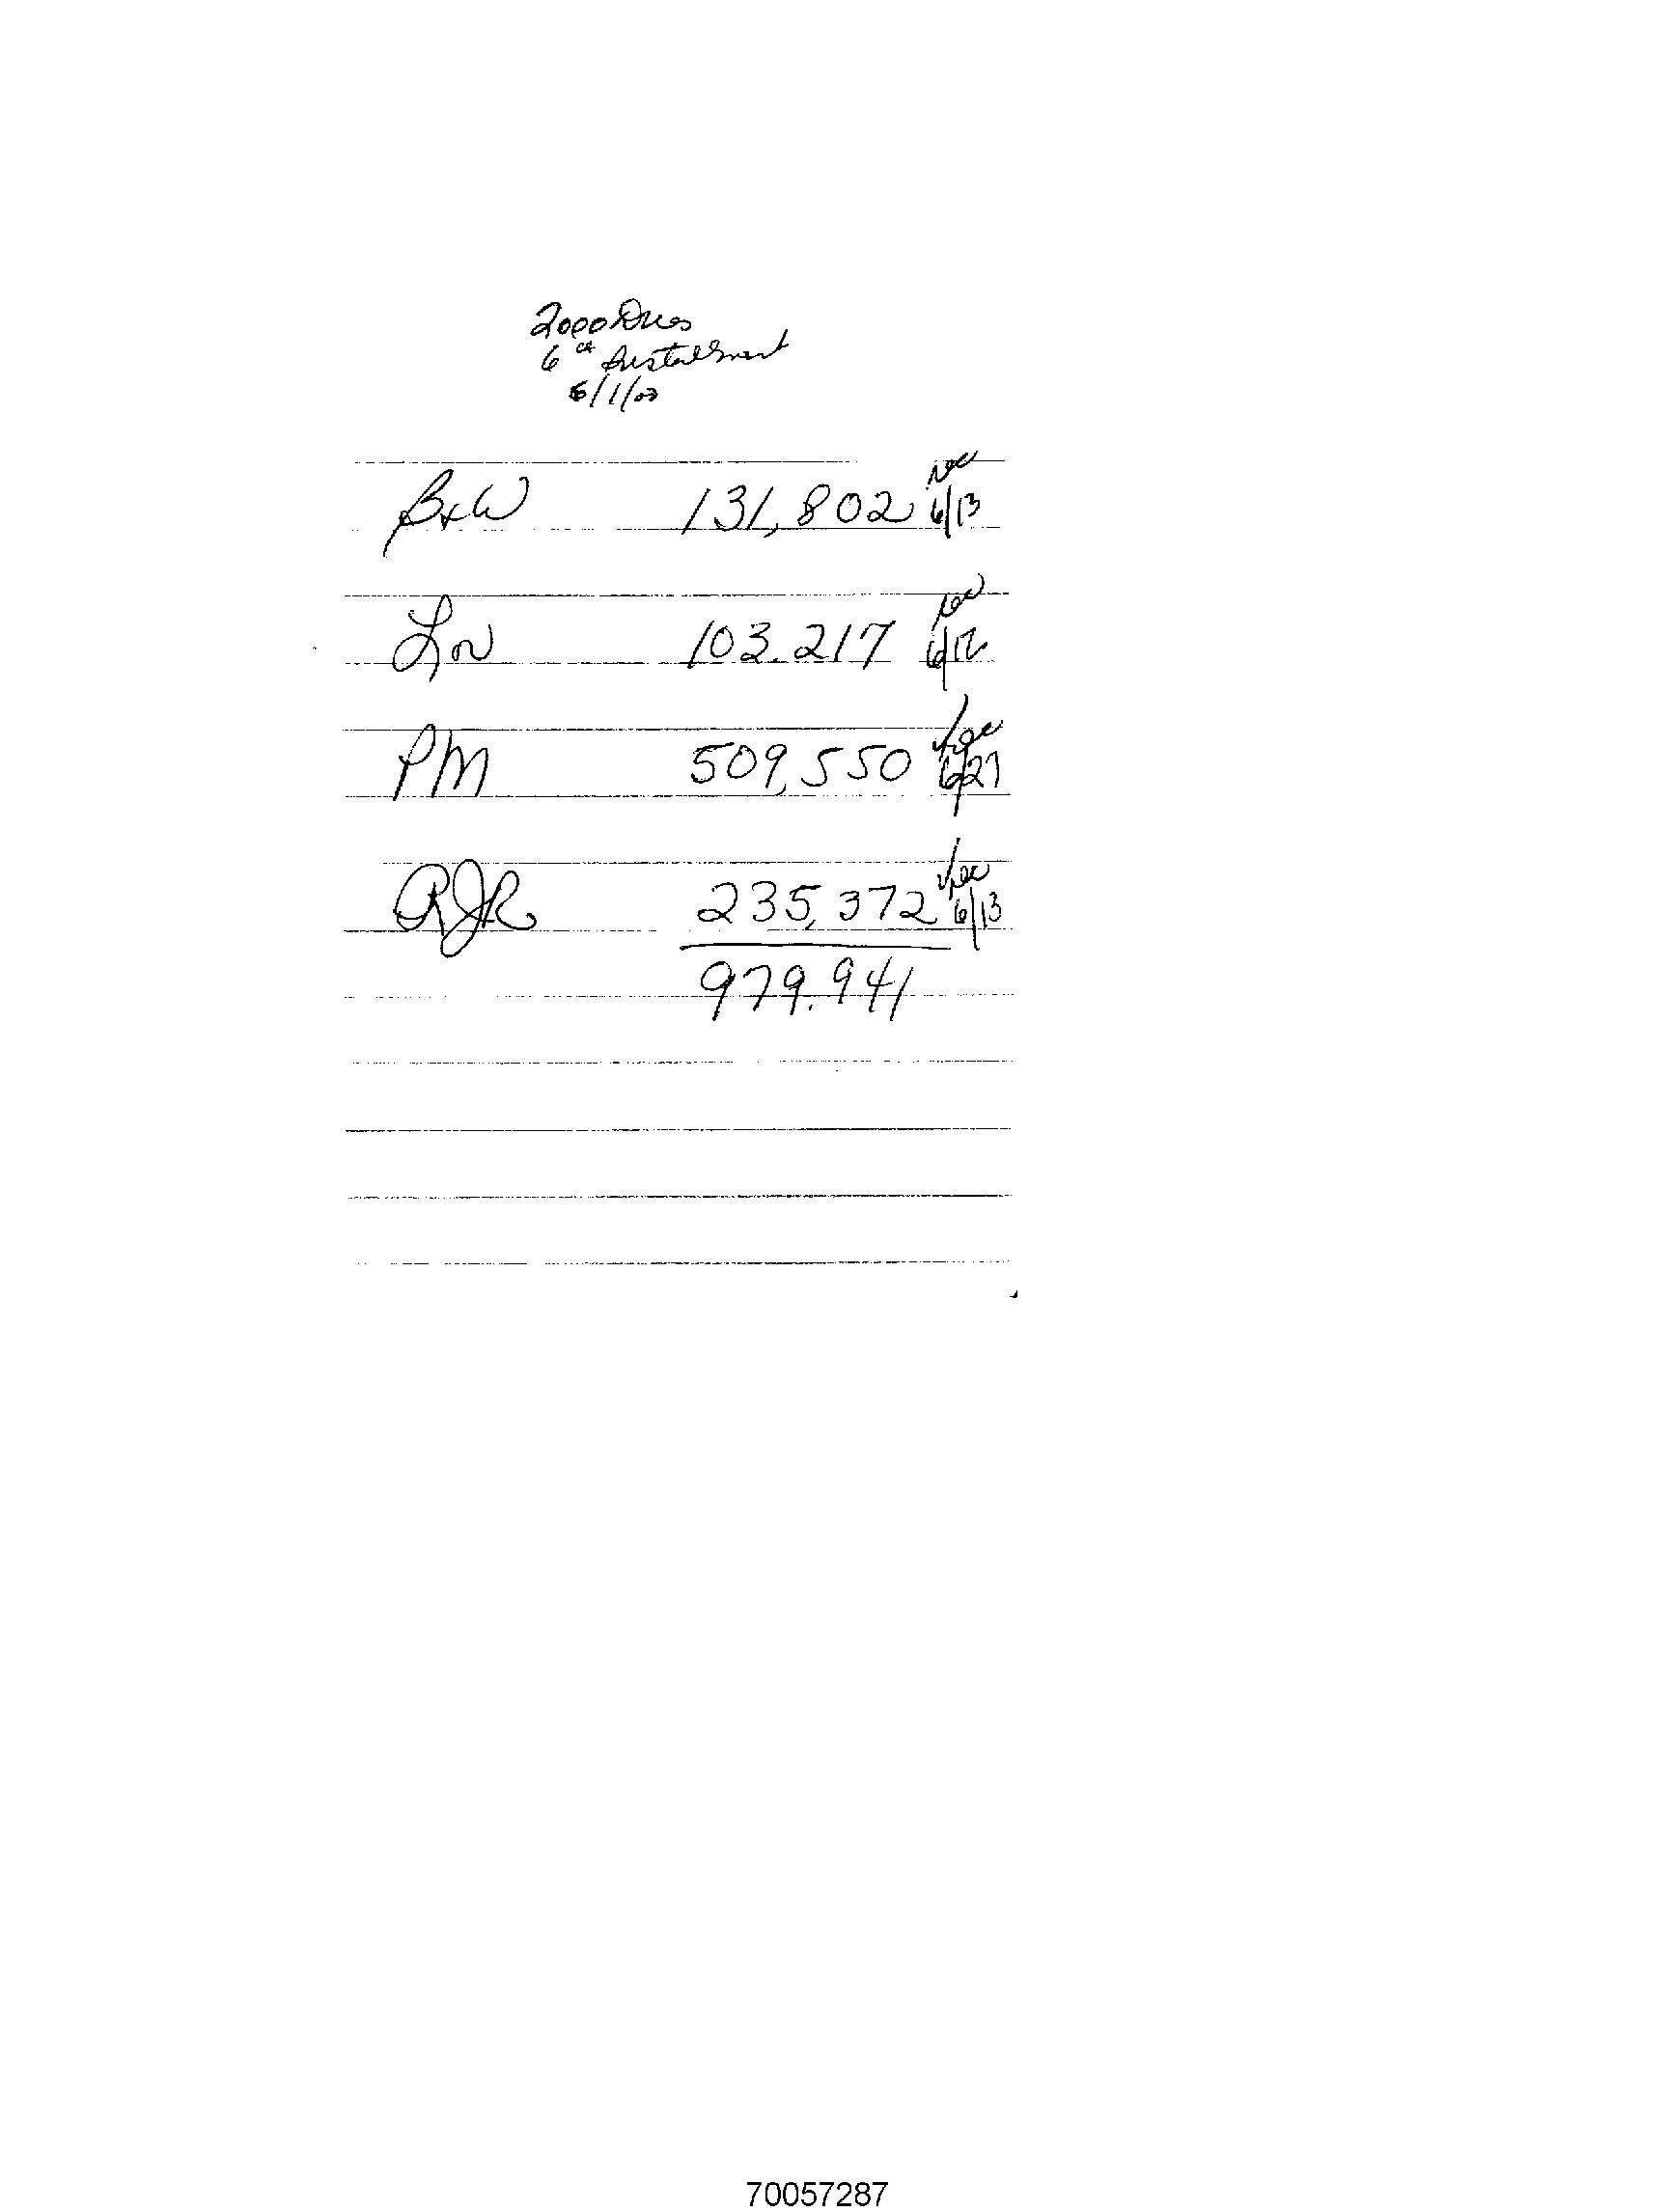 2000 Dues
6th Installment
6/1/00
B+W 131,802 rec 6/13
Lor 103.217 rec 6/12
PM 509,550 rec 6/27
RJR 235,372 rec 6/13
979.941
70057287